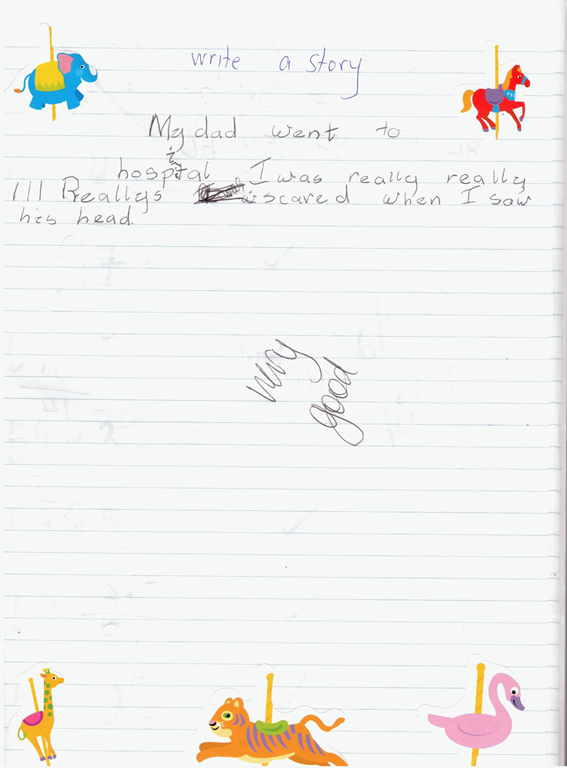 write a story
My dad went to
hospital I was really really
/ / / Reallys scared when I saw
his head.
very
good